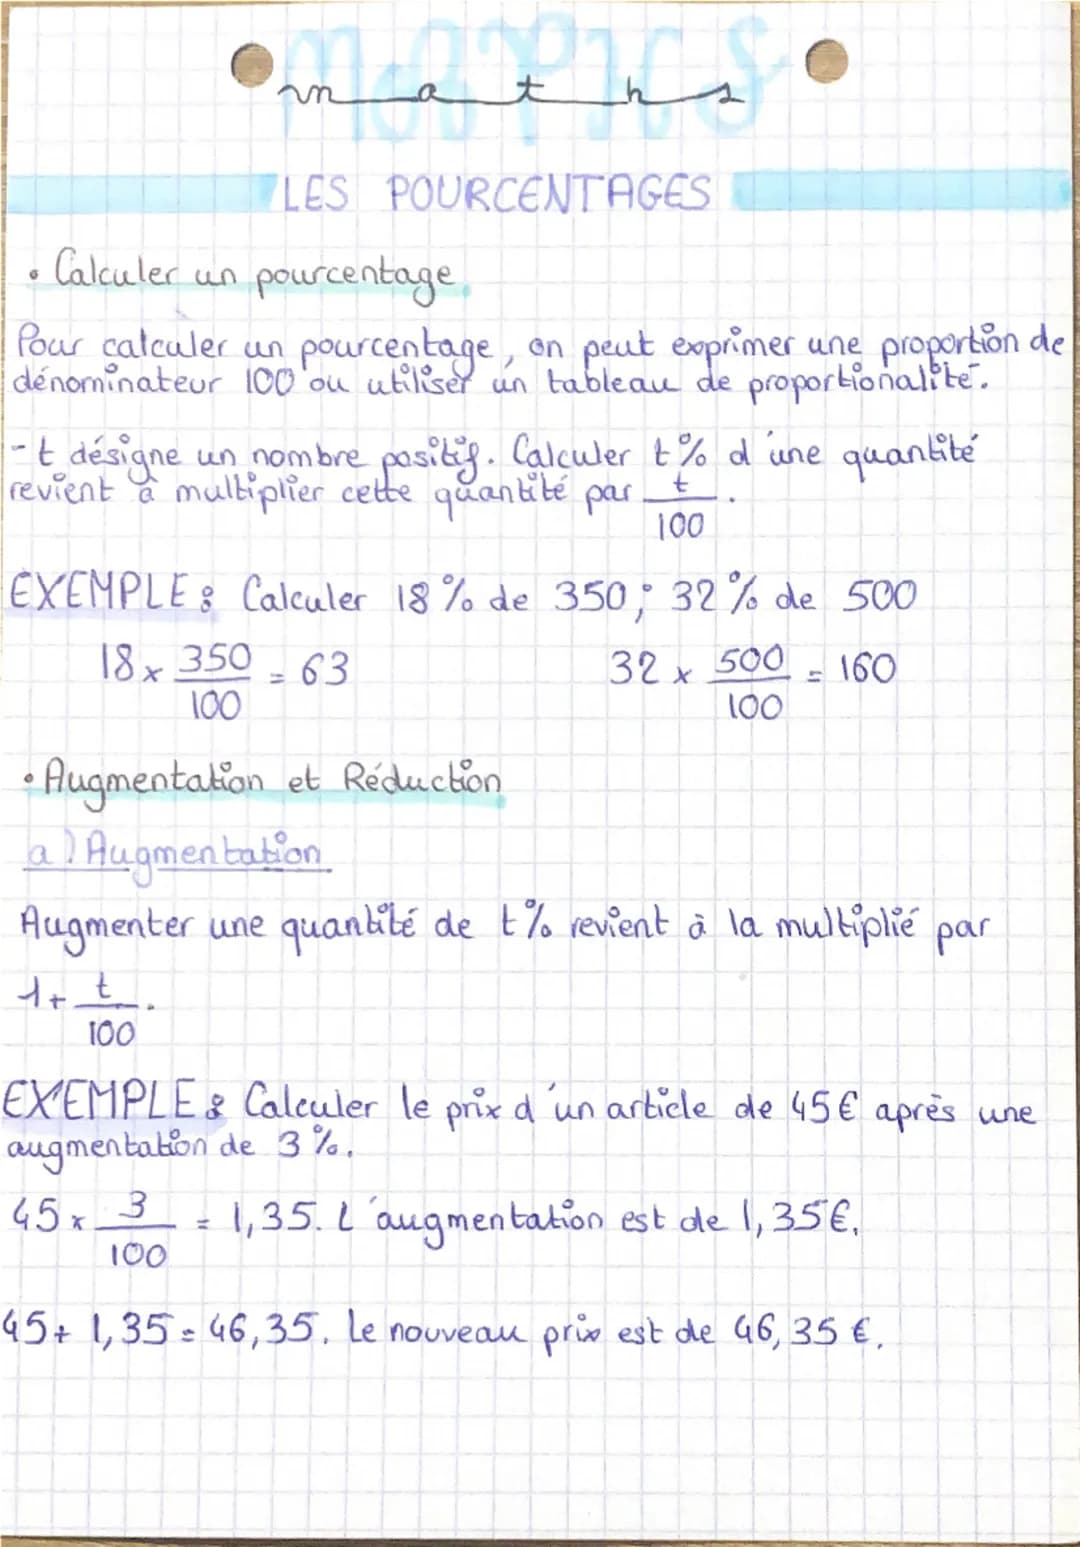 MATHS
maths
LES POURCENTAGES
• Calculer un pourcentage
Pour calculer un pourcentage, on peut exprimer une proportion de
dénominateur 100 ou utiliser un tableau de proportionalité.
- t désigne un nombre positif. Calculer t% d'une quantité
revient à multiplier cette quantité par t/100.
EXEMPLE : Calculer 18% de 350 ; 32% de 500
18 x 350/100 = 63 32 x 500/100 = 160
• Augmentation et Réduction
a) Augmentation
Augmenter une quantité de t% revient à la multiplié par
1 + t/100.
EXEMPLE : Calculer le prix d'un article de 45€ après une
augmentation de 3%.
45 x 3/100 = 1,35. L'augmentation est de 1,35€.
45 + 1,35 = 46,35. Le nouveau prix est de 46,35 €.